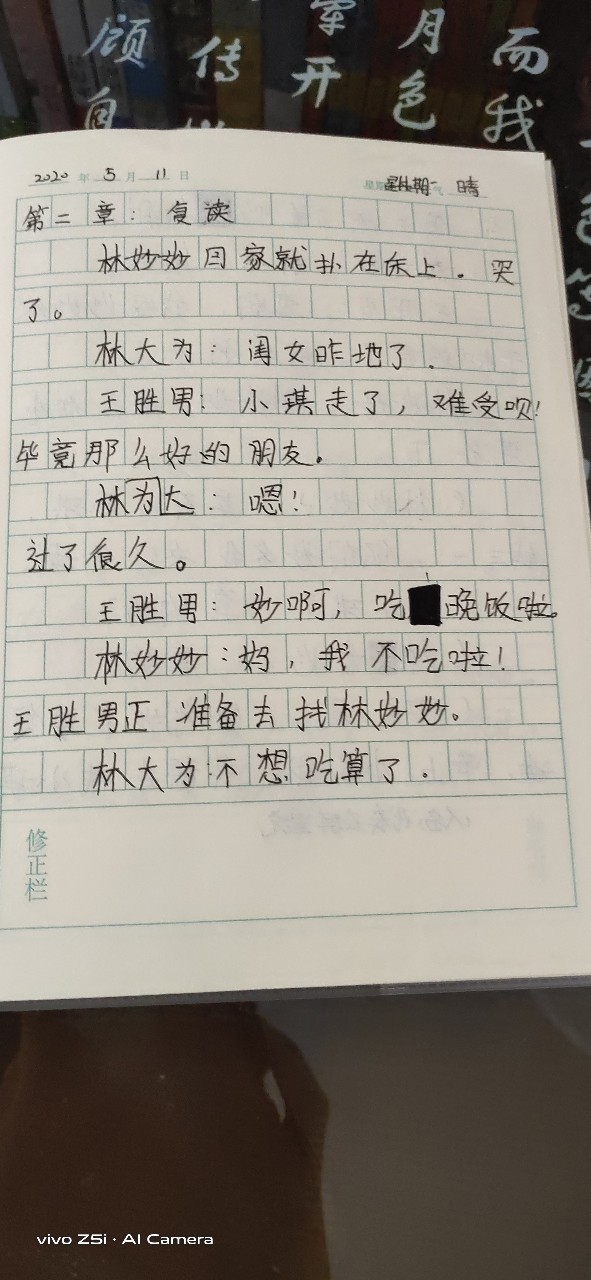 顾
自
传
军
开
月
色
而
我
2020 年 5 月 11 日 星期一 晴
第二章：复读
林妙妙回家就扑在床上．哭
了。
林大为：闺女咋地了．
王胜男：小琪走了，难受呗！
毕竟那么好的朋友。
林为大：嗯！
过了很久。
王胜男：妙啊，吃晚饭啦。
林妙妙：妈，我不吃啦！
王胜男正准备去找林妙妙。
林大为：不想吃算了．
修正栏
vivo Z5i · AI Camera